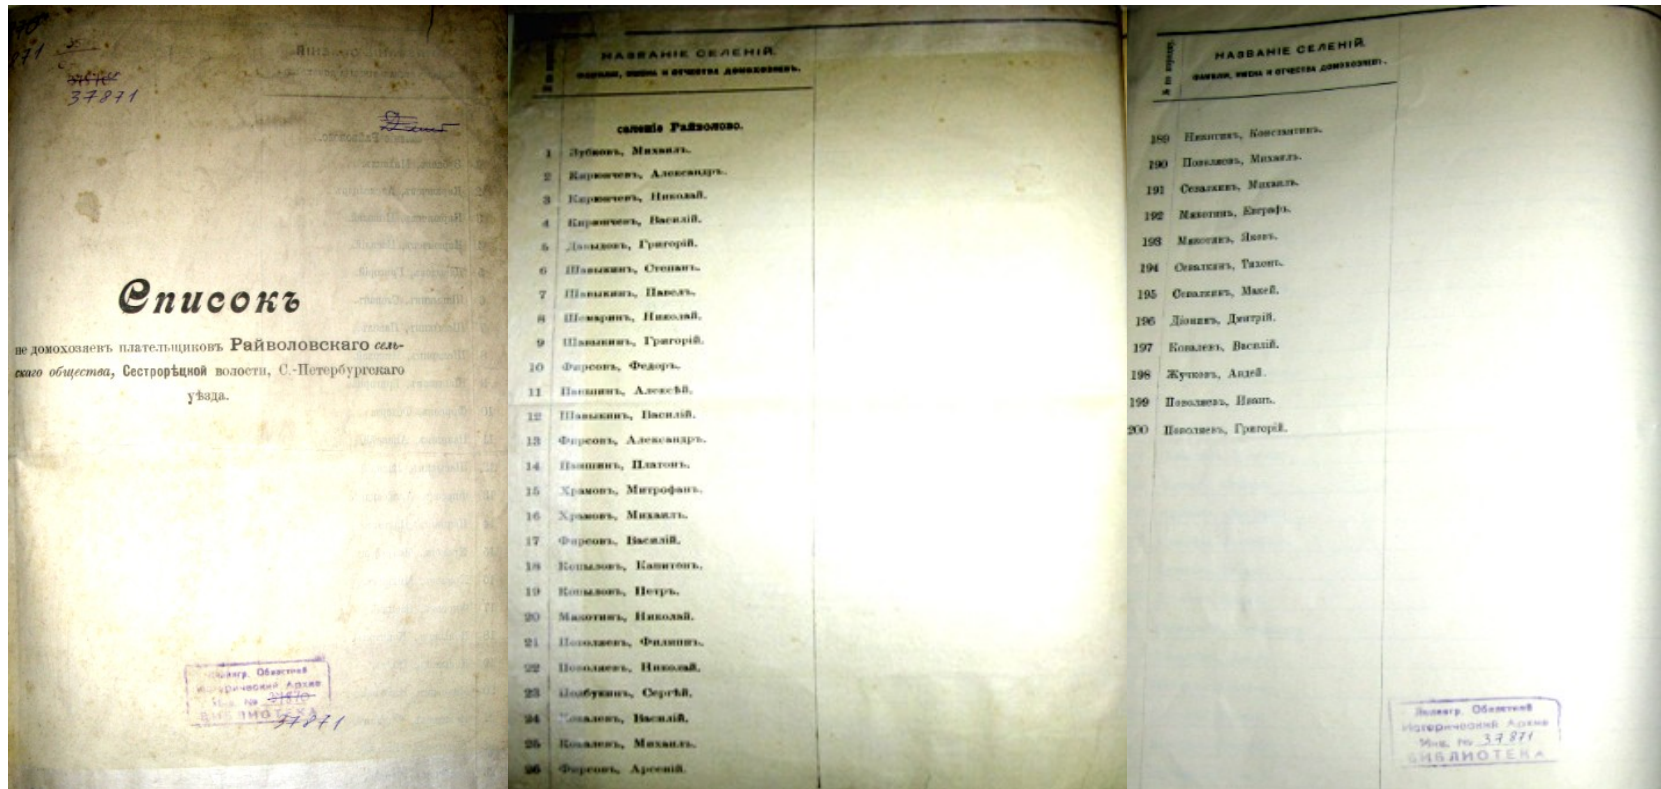 37871
Списокъ
не домохозяевъ плательщиковъ Райволовскаго сель-
скаго общества, Сестрорѣцкой волости, С.-Петербургскаго
уѣзда.
Областной
Исторический Архив
Инв. № 37870
БИБЛИОТЕКА
37871
НАЗВАНІЕ СЕЛЕНІЙ.
ФАМИЛІИ, ИМЕНА И ОТЧЕСТВА ДОМОХОЗЯЕВЪ.
селеніе Райволово.
1 Зубковъ, Михаилъ.
2 Кирюничевъ, Александръ.
3 Кирюничевъ, Николай.
4 Кирюничевъ, Василій.
5 Давыдовъ, Григорій.
6 Шавыкинъ, Степанъ.
7 Шавыкинъ, Павелъ.
8 Шемаринъ, Николай.
9 Шавыкинъ, Григорій.
10 Фирсовъ, Федоръ.
11 Паншинъ, Алексѣй.
12 Шавыкинъ, Василій.
13 Фирсовъ, Александръ.
14 Паншинъ, Платонъ.
15 Храмовъ, Митрофанъ.
16 Храмовъ, Михаилъ.
17 Фирсовъ, Василій.
18 Копыловъ, Капитонъ.
19 Копыловъ, Петръ.
20 Макотинъ, Николай.
21 Поволяевъ, Филиппъ.
22 Поволяевъ, Николай.
23 Подбукинъ, Сергѣй.
24 Ковалевъ, Василій.
25 Ковалевъ, Михаилъ.
26 Фирсовъ, Арсеній.
№ по порядку.
НАЗВАНІЕ СЕЛЕНІЙ.
ФАМИЛІИ, ИМЕНА И ОТЧЕСТВА ДОМОХОЗЯЕВЪ.
189 Никитинъ, Константинъ.
190 Поволяевъ, Михаилъ.
191 Севалкинъ, Михаилъ.
192 Макотинъ, Евграфъ.
193 Макотинъ, Яковъ.
194 Севалкинъ, Тихонъ.
195 Севалкинъ, Макей.
196 Діонинъ, Дмитрій.
197 Ковалевъ, Василій.
198 Жучковъ, Андей.
199 Поволяевъ, Иванъ.
200 Поволяевъ, Григорій.
Ленингр. Областной
Исторический Архив
Инв. № 37871
БИБЛИОТЕКА